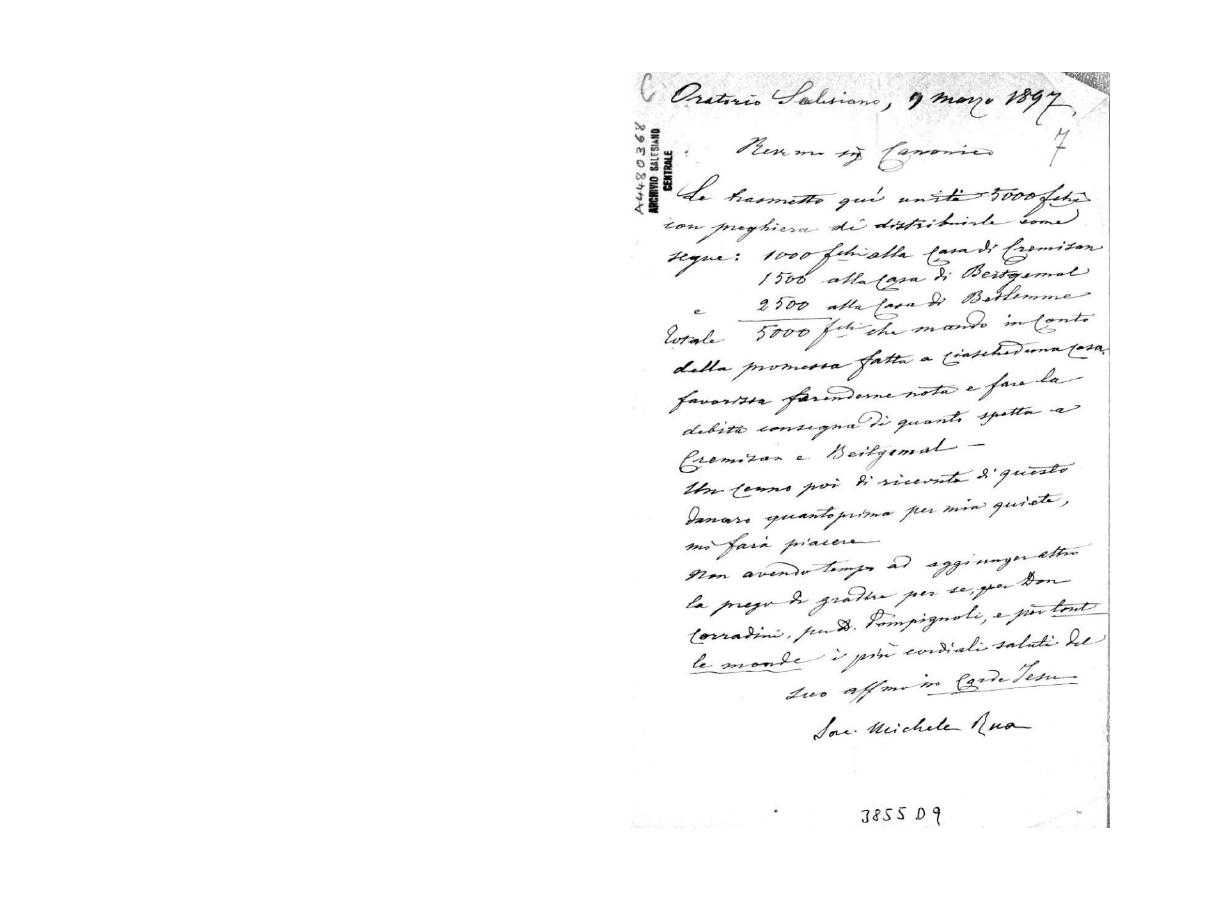 C
Oratorio Salesiano, 9 marzo 1897.
7
A4480368
ARCHIVIO SALESIANO
CENTRALE
Rev mo sig Canonico
Le trasmetto qui unite 5000 fchi
con preghiera di distribuirle come
segue: 1000 fchi alla Casa di Cremisan
1500 alla Casa di Beitgemal
e 2500 alla Casa di Betlemme
Totale 5000 fchi che mando in Conto
della promessa fatta a ciascheduna casa.
favorisca farenderne nota e fare la
debita consegna di quanto spetta a
Cremisan e Beitgemal —
Un cenno poi di ricevuta di questo
danaro quantoprima per mia quiete,
mi farà piacere
Non avendo tempo ad aggiunger altro
la prego di gradire per se, per Don
Corradini, per D. Pompignoli, e per tout
le monde i più cordiali saluti del
suo affmo in Corde Jesu
Sac. Michele Rua
3855 D 9